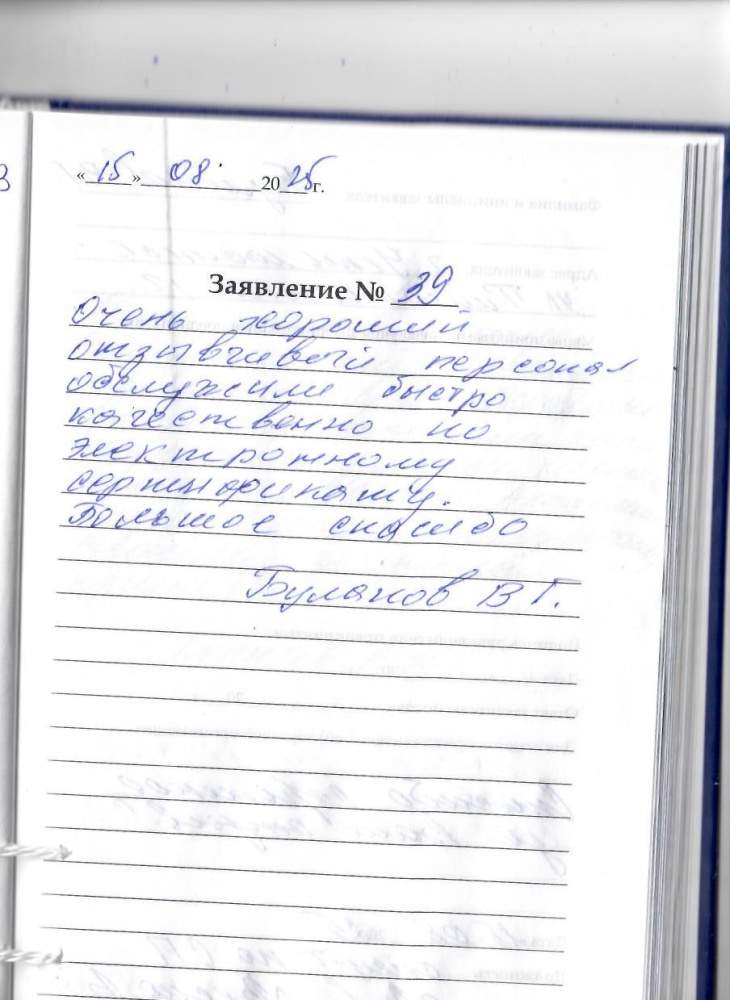 «15» 08 2025 г.
Заявление № 39
Очень хороший
отзывчивый персонал
обслужили быстро
качественно по
электронному
сертификату.
Большое спасибо
Буланов В Г.